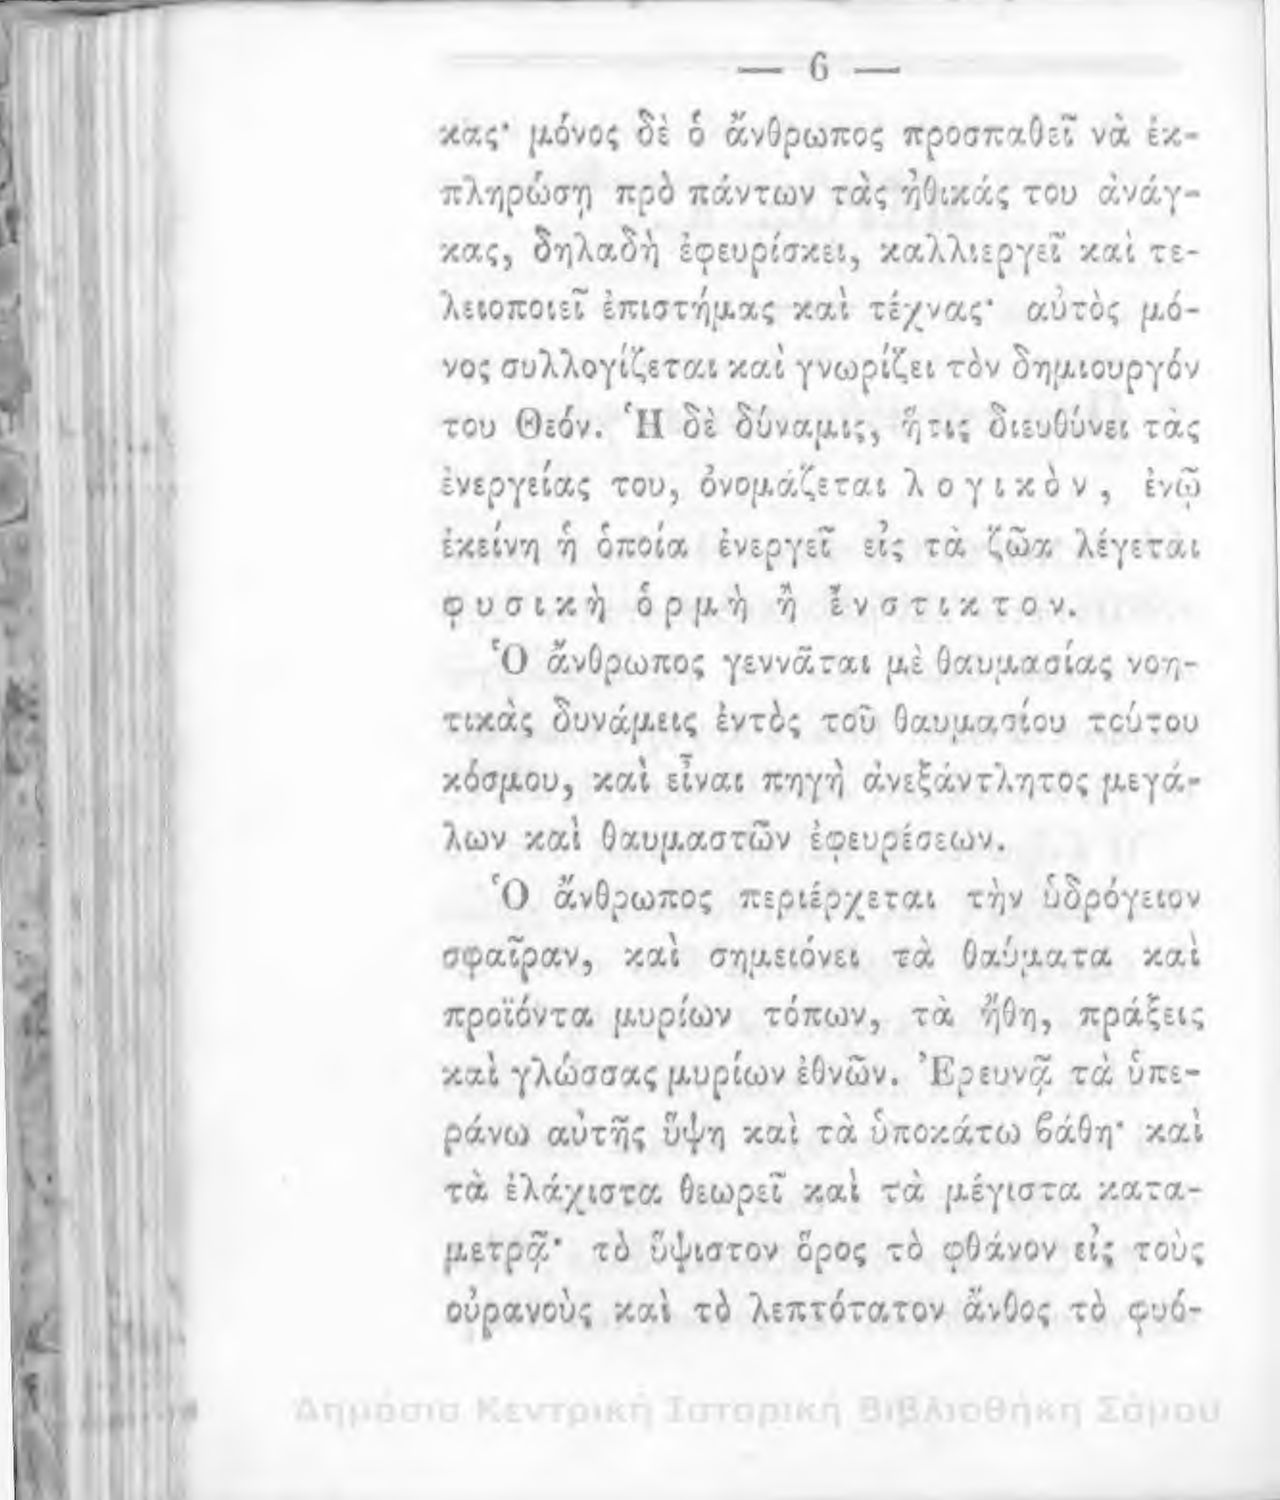 — 6 —
κας· μόνος δὲ ὁ ἄνθρωπος προσπαθεῖ νὰ ἐκ-
πληρώσῃ πρὸ πάντων τὰς ἠθικάς του ἀνάγ-
κας, δηλαδὴ ἐφευρίσκει, καλλιεργεῖ καὶ τε-
λειοποιεῖ ἐπιστήμας καὶ τέχνας· αὐτὸς μό-
νος συλλογίζεται καὶ γνωρίζει τὸν δημιουργόν
του Θεόν. Ἡ δὲ δύναμις, ἥτις διευθύνει τὰς
ἐνεργείας του, ὀνομάζεται λογικὸν, ἐνῷ
ἐκείνη ἡ ὁποία ἐνεργεῖ εἰς τὰ ζῶα λέγεται
φυσικὴ ὁρμὴ ἢ ἔνστικτον.
Ὁ ἄνθρωπος γεννᾶται μὲ θαυμασίας νοη-
τικὰς δυνάμεις ἐντὸς τοῦ θαυμασίου τούτου
κόσμου, καὶ εἶναι πηγὴ ἀνεξάντλητος μεγά-
λων καὶ θαυμαστῶν ἐφευρέσεων.
Ὁ ἄνθρωπος περιέρχεται τὴν ὑδρόγειον
σφαῖραν, καὶ σημειόνει τὰ θαύματα καὶ
προϊόντα μυρίων τόπων, τὰ ἤθη, πράξεις
καὶ γλώσσας μυρίων ἐθνῶν. Ἐρευνᾷ τὰ ὑπε-
ράνω αὐτῆς ὕψη καὶ τὰ ὑποκάτω βάθη· καὶ
τὰ ἐλάχιστα θεωρεῖ καὶ τὰ μέγιστα κατα-
μετρᾷ· τὸ ὕψιστον ὄρος τὸ φθάνον εἰς τοὺς
οὐρανοὺς καὶ τὸ λεπτότατον ἄνθος τὸ φυό-
Δημόσια Κεντρική Ιστορική Βιβλιοθήκη Σάμου